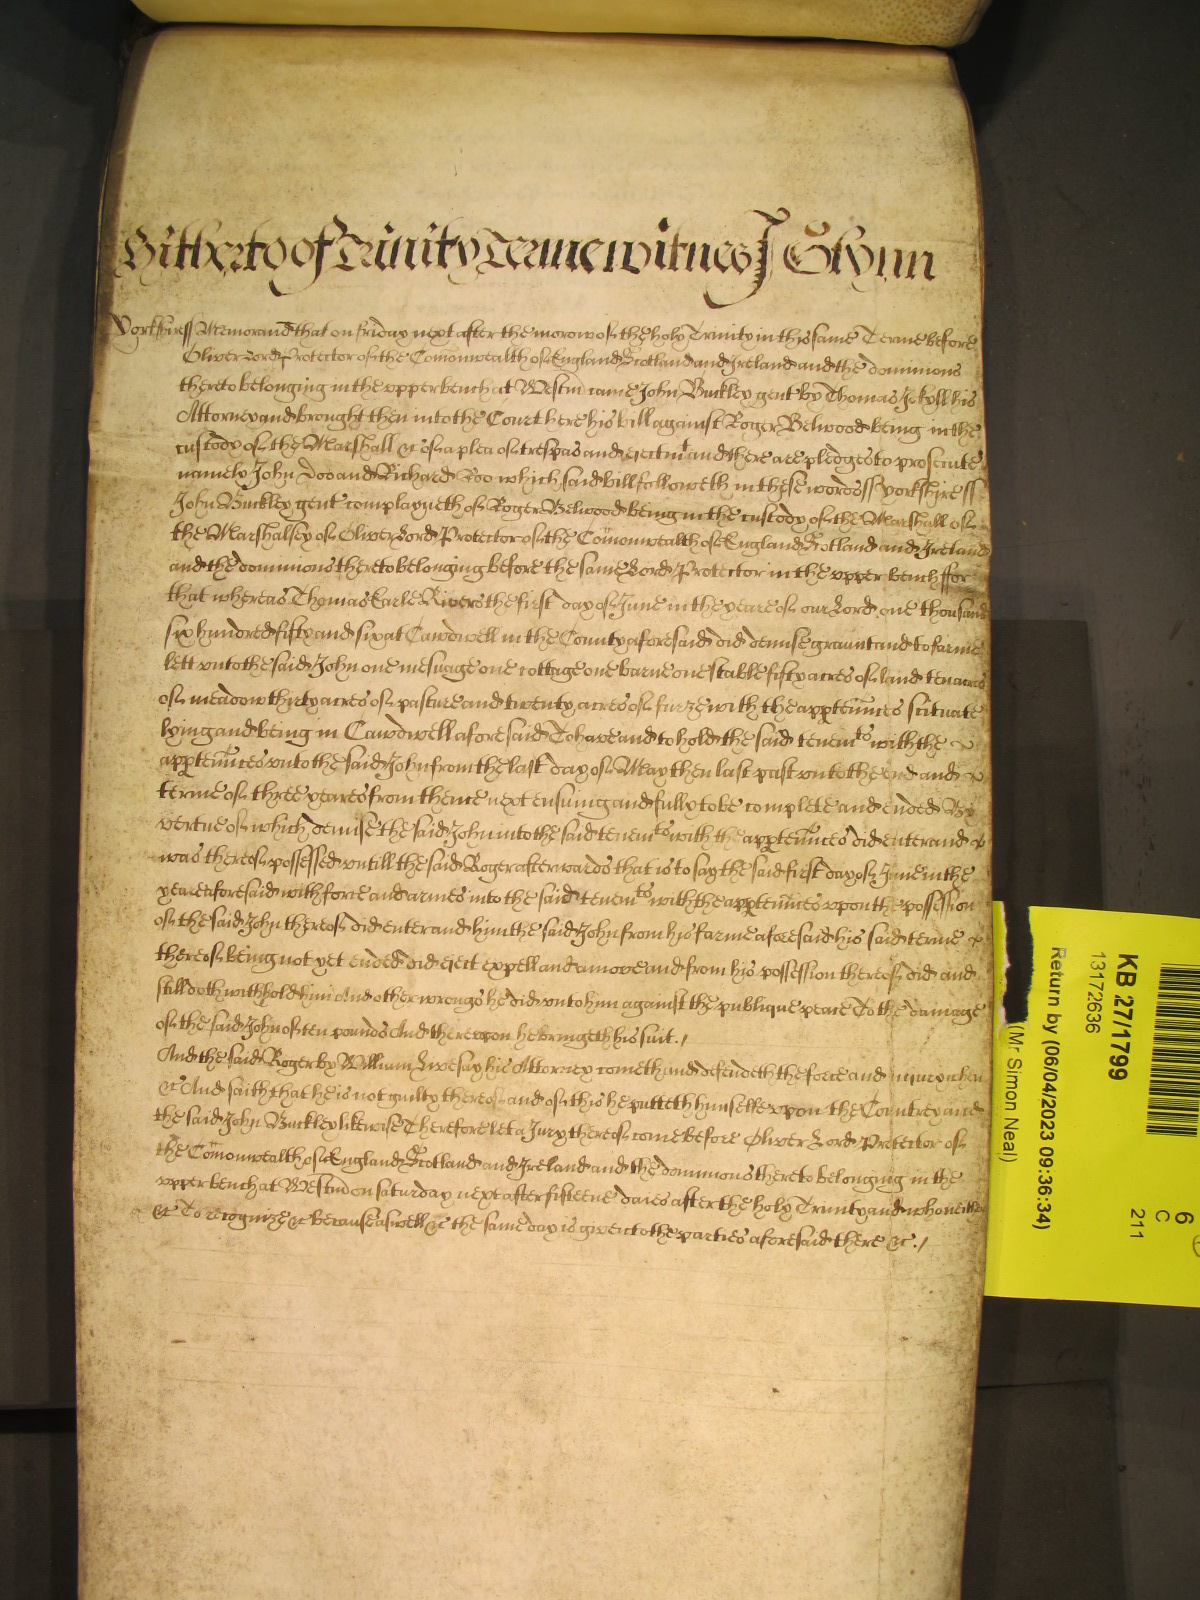 Hitherto of Trinity Terme witness J Glynn
Yorkshire ss Memorand that on friday next after the morow of the holy Trinity in this same Terme before
Oliver Lord Protector of the Comonwealth of England Scotland and Ireland and the dominions
thereto belonging in the vpper bench at Westm came John Buckley gent by Thomas Jekyll his
Attorney and brought then into the Court here his bill against Roger Belwood being in the
custody of the Marshall &c of a plea of trespas and eiectmt and there are pledges to prosecute
namely John Doo and Richard Roo which said bill followeth in these words ss Yorkshire ss
John Buckley gent complayneth of Roger Belwood being in the custody of the Marshall of
the Marshalsey of Oliver Lord Protector of the Comonwealth of England Scotland and Ireland
and the dominions thereto belonging before the same Lord Protector in the vpper bench ffor
that whereas Thomas Earle Rivers the first day of June in the yeare of our Lord one thousand
six hundred fifty and six at Cawdwell in the County aforesaid did demise graunt and to farme
lett vnto the said John one mesuage one cottage one barne one stable fifty acres of land ten acres
of meadow thirty acres of pasture and twenty acres of furze with the apptennces scituate
lying and being in Cawdwell aforesaid To have and to hold the said tenemts with the
apptennces vnto the said John from the last day of May then last past vnto the end and
terme of three yeares from thence next ensuing and fully to be complete and ended By
vertue of which demise the said John into the said tenemts with the apptennces did enter and
was thereof possessed vntill the said Roger afterwards that is to say the said first day of June in the
yeare aforesaid with force and armes into the said tenemts with the apptennces vpon the possession
of the said John thereof did enter and him the said John from his farme aforesaid his said terme
thereof being not yet ended did eject expell and amove and from his possession thereof did and
still doth withhold him And other wrongs he did vnto him against the publique peace To the damage
of the said John of ten pounds And therevpon he bringeth his suit.
And the said Roger by William Livesay his Attorney cometh and defendeth the force and iniury when
&c And saith that he is not guilty thereof and of this he putteth himselfe vpon the Countrey and
the said John Buckley likewise Therefore let a Jury thereof come before Oliver Lord Protector of
the Comonwealth of England Scotland and Ireland and the dominions thereto belonging in the
vpper bench at Westm on saturday next after fifteene daies after the holy Trinity and who neither
&c To recognize &c because aswell &c the same day is given to the parties aforesaid there &c.
KB 27/1799
13172636
Return by (06/04/2023 09:36:34)
(Mr Simon Neal)
6
C
211